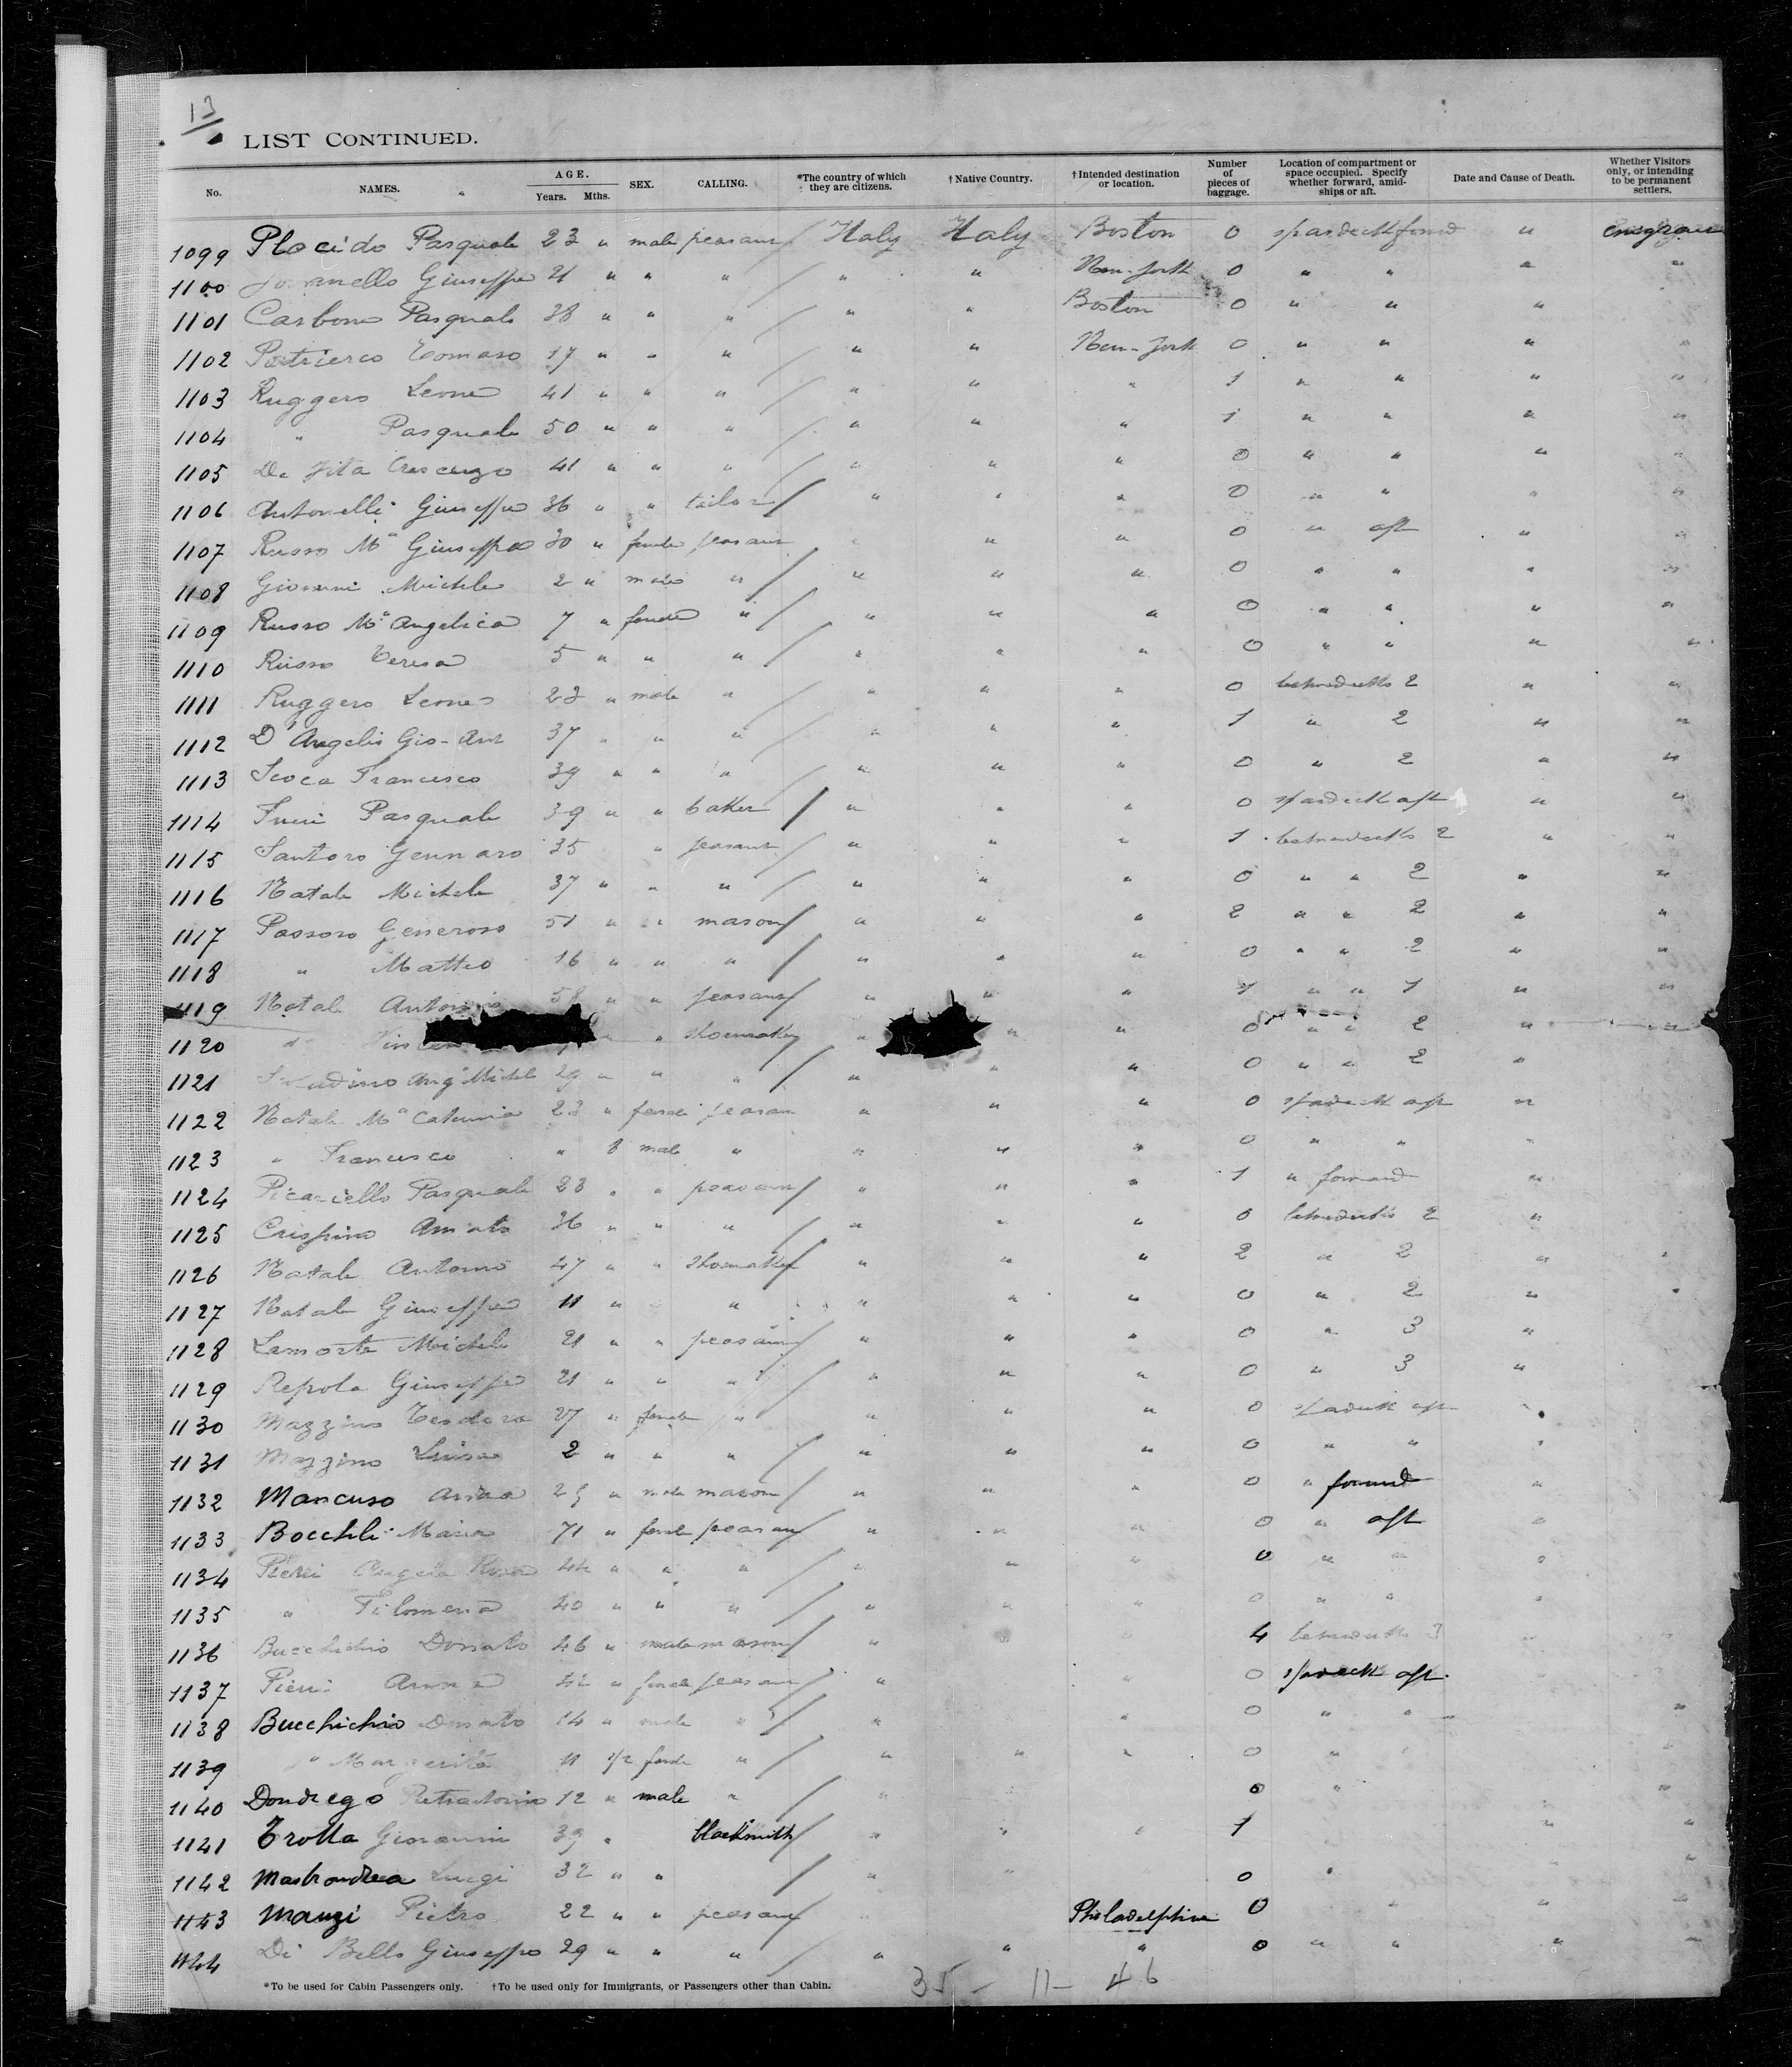 13
LIST CONTINUED.
No. NAMES. AGE. Years. Mths. SEX. CALLING. *The country of which they are citizens. †Native Country. †Intended destination or location. Number of pieces of baggage. Location of compartment or space occupied. Specify whether forward, amidships or aft. Date and Cause of Death. Whether Visitors only, or intending to be permanent settlers.
1099 Placido Pasquale 23 " male peasant / Italy Italy Boston 0 spardeck forwd "
1100 Giuseppe 21 " " " / " " New-York 0 " " " "
1101 Carbone Pasquale 38 " " " / " " Boston 0 " " "
1102 Tomaso 17 " " " / " " New-York 0 " " " "
1103 Ruggero Leone 41 " " " / " " " 1 " " " "
1104 " Pasquale 50 " " " / " " " 1 " " " "
1105 De Vita Crescenzo 41 " " " / " " " 0 " " " "
1106 Antonelli Giuseppe 36 " " tailor / " " " 0 " " " "
1107 Russo Ma Giuseppa 30 " female peasant " " " 0 " aft " "
1108 Giovanni Michele 2 " male " / " " " 0 " " " "
1109 Russo Ma Angelica 7 " female " / " " " 0 " " " "
1110 Russo Teresa 5 " " " / " " " 0 " " " "
1111 Ruggero Leone 23 " male " / " " " 0 betwdecks 2 " "
1112 D'Angelis Gio-Ant 37 " " " / " " " 1 " 2 " "
1113 Scoca Francesco 39 " " " / " " " 0 " 2 " "
1114 Pasquale 39 " " baker / " " " 0 spardeck aft " "
1115 Santoro Gennaro 35 " peasant / " " " 1 betwdecks 2 " "
1116 Natale Michele 37 " " " / " " " 0 " " 2 " "
1117 Passaro Generoso 51 " " mason / " " " 2 " " 2 " "
1118 " Matteo 16 " " " / " " " 0 " " 2 " "
1119 Natale Antonio 58 " " peasant / " " " 1 " " 1 " "
1120 " " shoemaker " " " 0 " " 2 "
1121 Ang Michel 29 " " " / " " " 0 " " 2 "
1122 Natale Ma Caterina 23 " female peasant " " " 0 spardeck aft "
1123 " Francesco " 8 male " " " " 0 " " "
1124 Picariello Pasquale 23 " " peasant / " " " 1 " forward "
1125 Crispino Amato 36 " " " / " " " 0 betwdecks 2 "
1126 Natale Antonio 47 " " shoemaker / " " " 2 " 2 " "
1127 Natale Giuseppe 11 " " " " " " 0 " 2 " "
1128 Lamorte Michele 21 " " peasant / " " " 0 " 3 "
1129 Repola Giuseppe 21 " " " / " " " 0 " 3 "
1130 Mazzino Teodora 27 " female " " " " 0 spardeck aft "
1131 Mazzino Luisa 2 " " " / " " " 0 " " "
1132 Mancuso 25 " male mason / " " " 0 " forward "
1133 Maria 71 " female peasant / " " " 0 " aft "
1134 Pierri Angela Rosa 44 " " " / " " " 0 " " "
1135 " Filomena 40 " " " / " " " 0 " " "
1136 Bucchichio Donato 46 " male mason / " 4 betwdecks 3
1137 Pierri 42 " female peasant / " " 0 spardeck aft
1138 Bucchichio Donato 14 " male " / " " 0 " " "
1139 " Margerita 11 1/2 female " / " " " 0 "
1140 Dondrego 12 " male " / " " 0 " "
1141 Trotta Giovanni 39 " blacksmith / " " " 1 " "
1142 Mastrandrea Luigi 32 " " / " " 0 "
1143 Manzi Pietro 22 " " peasant Philadelphia 0 " " "
1144 Di Bello Giuseppe 29 " " " / " " " 0 " " " "
*To be used for Cabin Passengers only. †To be used only for Immigrants, or Passengers other than Cabin.
35 - 11 - 46